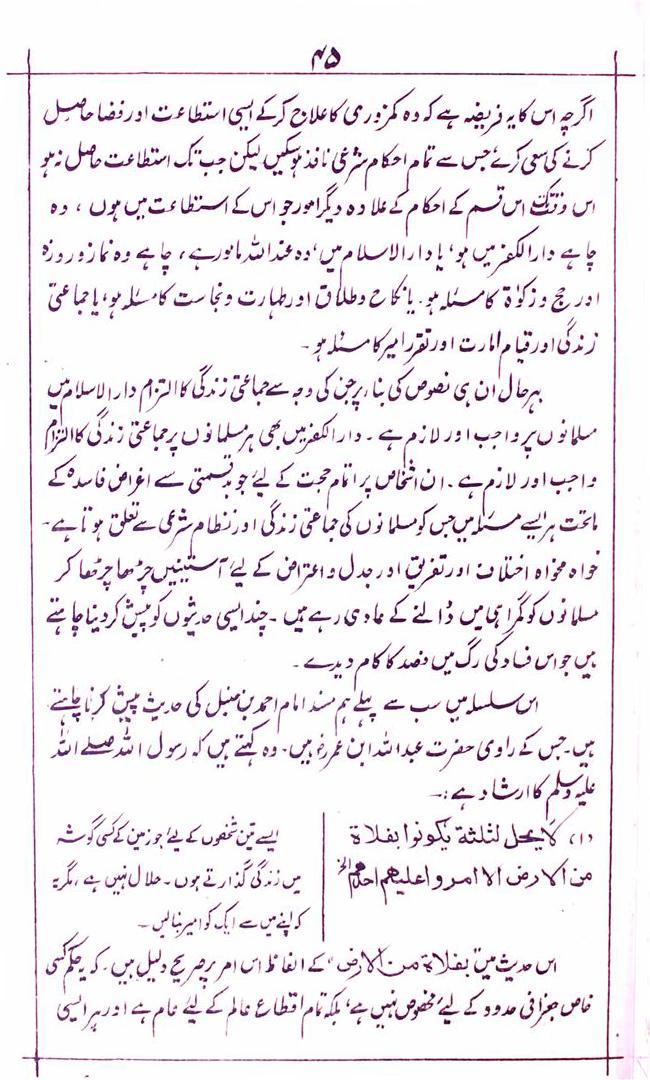 ۴۵
اگرچہ اس کا یہ فریضہ ہے کہ وہ کمزوری کا علاج کرکے ایسی استطاعت اور فضا حاصل
کرنے کی سعی کرے جس سے تمام احکام شرعی نافذ ہوسکیں لیکن جب تک استطاعت حاصل نہ ہو
اس وقت تک اس قسم کے احکام کے علاوہ دیگر امور جو اس کے استطاعت میں ہوں ، وہ
چاہے دار الکفر میں ہو، یا دار الاسلام میں، وہ عند اللہ مامور ہے ، چاہے وہ نماز و روزہ
اور حج و زکوٰۃ کا مسئلہ ہو. یا نکاح و طلاق اور طہارت و نجاست کا مسئلہ ہو، یا جماعتی
زندگی اور قیام امارت اور تقرر امیر کا مسئلہ ہو ۔
بہرحال ان ہی نصوص کی بناء پر جن کی وجہ سے جماعتی زندگی کا التزام دار الاسلام میں
مسلمانوں پر واجب اور لازم ہے ۔ دار الکفر میں بھی ہر مسلمانوں پر جماعتی زندگی کا التزام
واجب اور لازم ہے ۔ ان اشخاص پر اتمام حجت کے لیئے جو بدقسمتی سے اغراض فاسدہ کے
ماتحت ہر ایسے مسئلہ میں جس کو مسلمانوں کی جماعتی زندگی اور نظام شرعی سے تعلق ہوتا ہے۔
خواہ مخواہ اختلاف اور تفریق اور جدل و اعتراض کے لیئے آستینیں چڑھا چڑھا کر
مسلمانوں کو گمراہی میں ڈالنے کے عادی رہے ہیں ۔ چند ایسی حدیثوں کو پیش کردینا چاہتے
ہیں جو اس فساد کی رگ میں فصد کا کام دیدے ۔
اس سلسلہ میں سب سے پہلے ہم مسند امام احمد بن حنبل کی حدیث پیش کرنا چاہتے
ہیں۔ جس کے راوی حضرت عبد اللہ ابن عمرؓ ہیں۔ وہ کہتے ہیں کہ رسول اللہ صلے اللہ
علیہ وسلم کا ارشاد ہے :۔
(۱) لا یحل لثلثة یکونوا بفلاة
من الارض الا امروا علیھم احدھم الخ
ایسے تین شخصوں کے لیئے جو زمین کے کسی گوشہ
میں زندگی گذارتے ہوں۔ حلال نہیں ہے ، مگر یہ
کہ اپنے میں سے ایک کو امیر بنالیں ۔
اس حدیث میں "بفلاة من الارض" کے الفاظ اس امر پر صریح دلیل ہیں۔ کہ یہ حکم کسی
خاص جغرافی حدود کے لیئے مخصوص نہیں ہے، بلکہ تمام اقطاع عالم کے لیئے عام ہے اور ہر ایسی